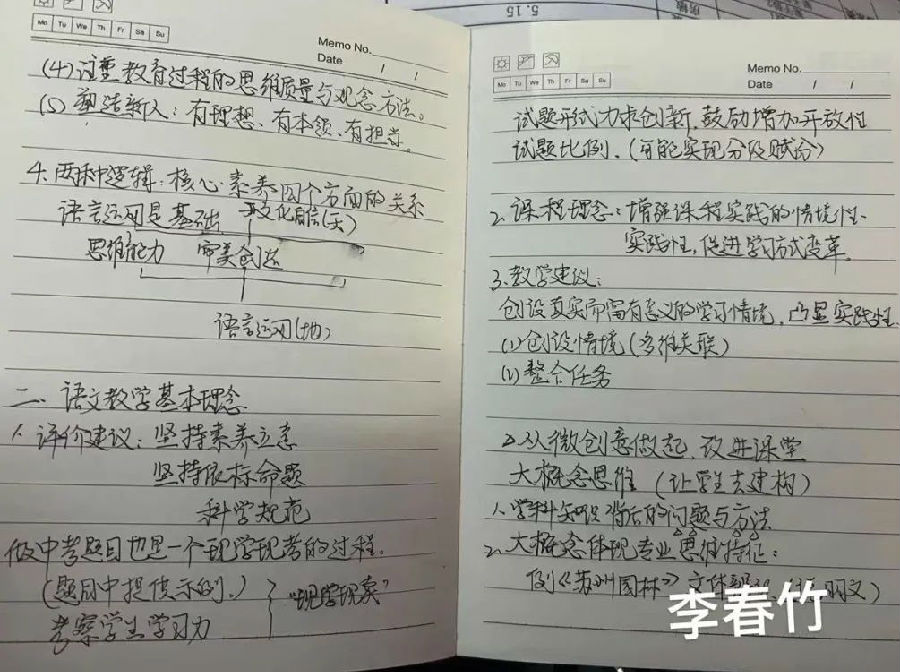 5.15
Mo Tu We Th Fr Sa Su
Memo No.
Date / /
(4)注重教育过程的思维质量与观念方法。
(5)塑造新人：有理想、有本领、有担当。
4.两种逻辑：核心素养四个方面的关系
语言运用是基础 文化自信(天)
思维能力 审美创造
语言运用(地)
二、语文教学基本理念
1.评价建议：坚持素养立意
坚持依标命题
科学规范
做中考题目也是一个现学现考的过程.
(题目中提供示例.)
"现学现卖"
考察学生学习力
Mo Tu We Th Fr Sa Su
Memo No.
Date / /
试题形式力求创新,鼓励增加开放性
试题比例.(可能实现分级赋分)
2.课程理念：增强课程实践的情境性、
实践性,促进学习方式变革.
3.教学建议：
创设真实而富有意义的学习情境,凸显实践性.
(1)创设情境(多维关联)
(2)整合任务
从微创意做起,改进课堂
大概念思维(让学生去建构)
1.学科知识背后的问题与方法
2.大概念体现专业思维特征：
例《苏州园林》文体
李春竹